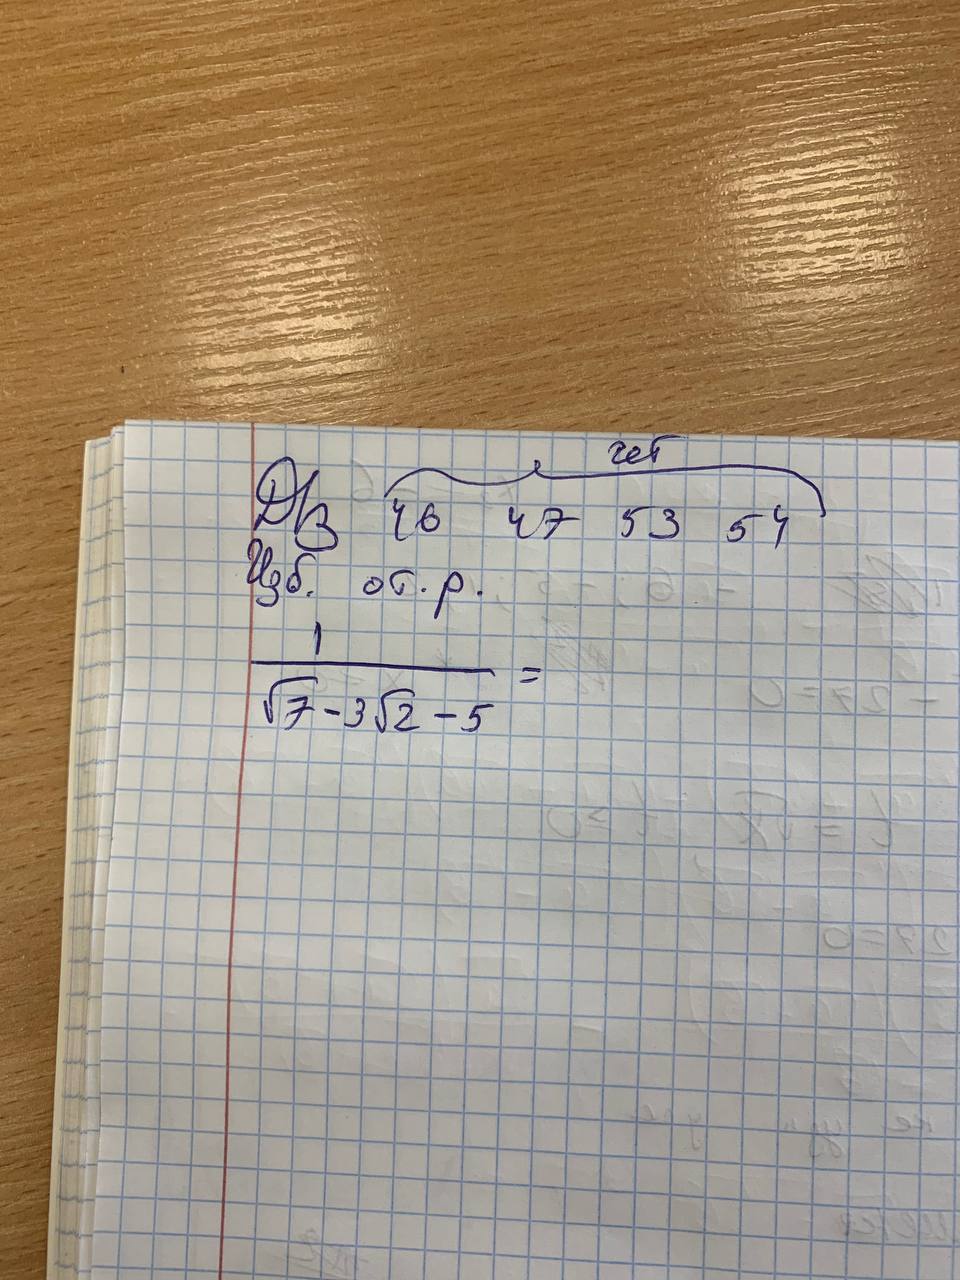 чет
Д/З 46 47 53 54
Изб. от. р.
1
√7 - 3√2 - 5 =